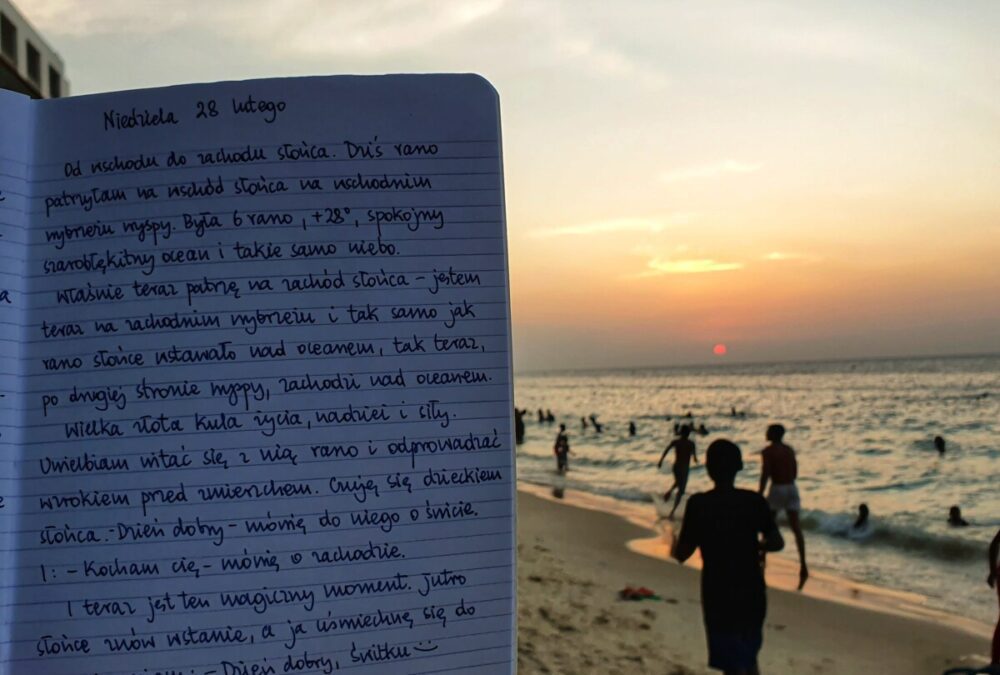 Niedziela 28 lutego
Od wschodu do zachodu słońca. Dziś rano
patrzyłam na wschód słońca na wschodnim
wybrzeżu wyspy. Była 6 rano, +28°, spokojny
szarobłękitny ocean i takie samo niebo.
Właśnie teraz patrzę na zachód słońca - jestem
teraz na zachodnim wybrzeżu i tak samo jak
rano słońce wstawało nad oceanem, tak teraz,
po drugiej stronie wyspy, zachodzi nad oceanem.
Wielka złota kula życia, nadziei i siły.
Uwielbiam witać się z nią rano i odprowadzać
wzrokiem przed zmierzchem. Czuję się dzieckiem
słońca. - Dzień dobry - mówię do niego o świcie.
I: - Kocham cię - mówię o zachodzie.
I teraz jest ten magiczny moment. Jutro
słońce znów wstanie, a ja uśmiechnę się do
- Dzień dobry, świtku